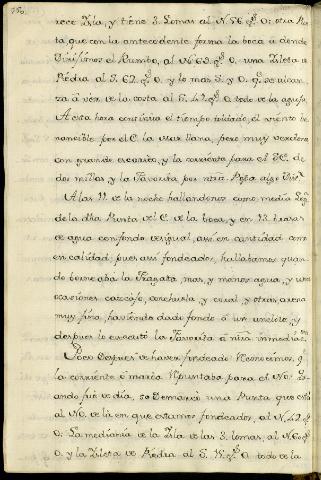 rece Ysla, y tiene 3. Lomas al N. 56 g.s O: otra Pun
ta que con la antecedente forma la boca a donde
dirixímos el Rumbo, al N. 62 g.s O. una Ysleta de
Piedra al S. 62 g.s O. y lo mas S. y O. q.e se alcan
za á vér de la costa al S. 42 g.s O. todo de la aguja.
A esta hora continúa el tiempo toldado, el viento bo
nancible por el C. la mar llana, pero muy
con grande escarcéo, y la corriente para el C. de
dos millas, y la Favorita por ntrã. Popa algo dist.e
A las 11 de la noche hallandonos como media Leg.a
de la dha Punta del C. de la boca, y en 13. brazas
de agua con fondo desigual, assi en cantidad como
en calidad, pues assi fondeados, hallabamos quan
do borneaba la Fragata, mas, y menos agua, y en
ocasiones cascajo, conchuela, y coral, y otras arena
muy fina, haviendo dado fondo á un anclote, y
despues lo executó la Favorita á ntra inmediac.on
Poco despues de haver fondeado reconocimos, q.e
la corriente ó maréa repuntaba para el NO.
ando fué de dia, se demarcó una Punta que está
al NO. de la en que estamos fondeados, al N. 42 g.s
O: La medianía de la Ysla de las 3. lomas, al N. 60 g.s
O. y la Ysleta de Piedra al S. g.s O. todo de la